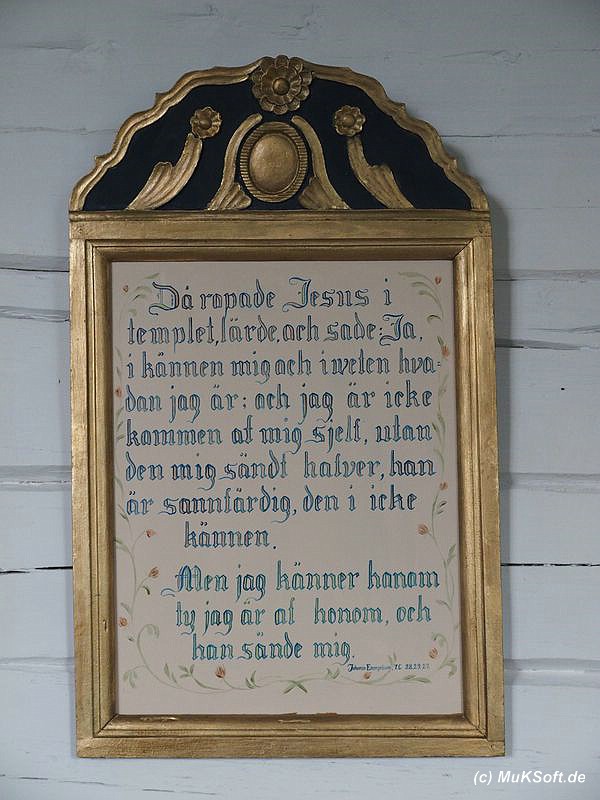 Då ropade Jesus i
templet, lärde, och sade: Ja,
i kännen mig och i weten hva=
dan jag är; och jag är icke
kommen af mig sjelf, utan
den mig sändt hafver, han
är sannfärdig, den i icke
kännen.
Men jag känner honom
ty jag är af honom, och
han sände mig.
Johannis Evangelium, 7.C. 28.29.
(c) MuKSoft.de